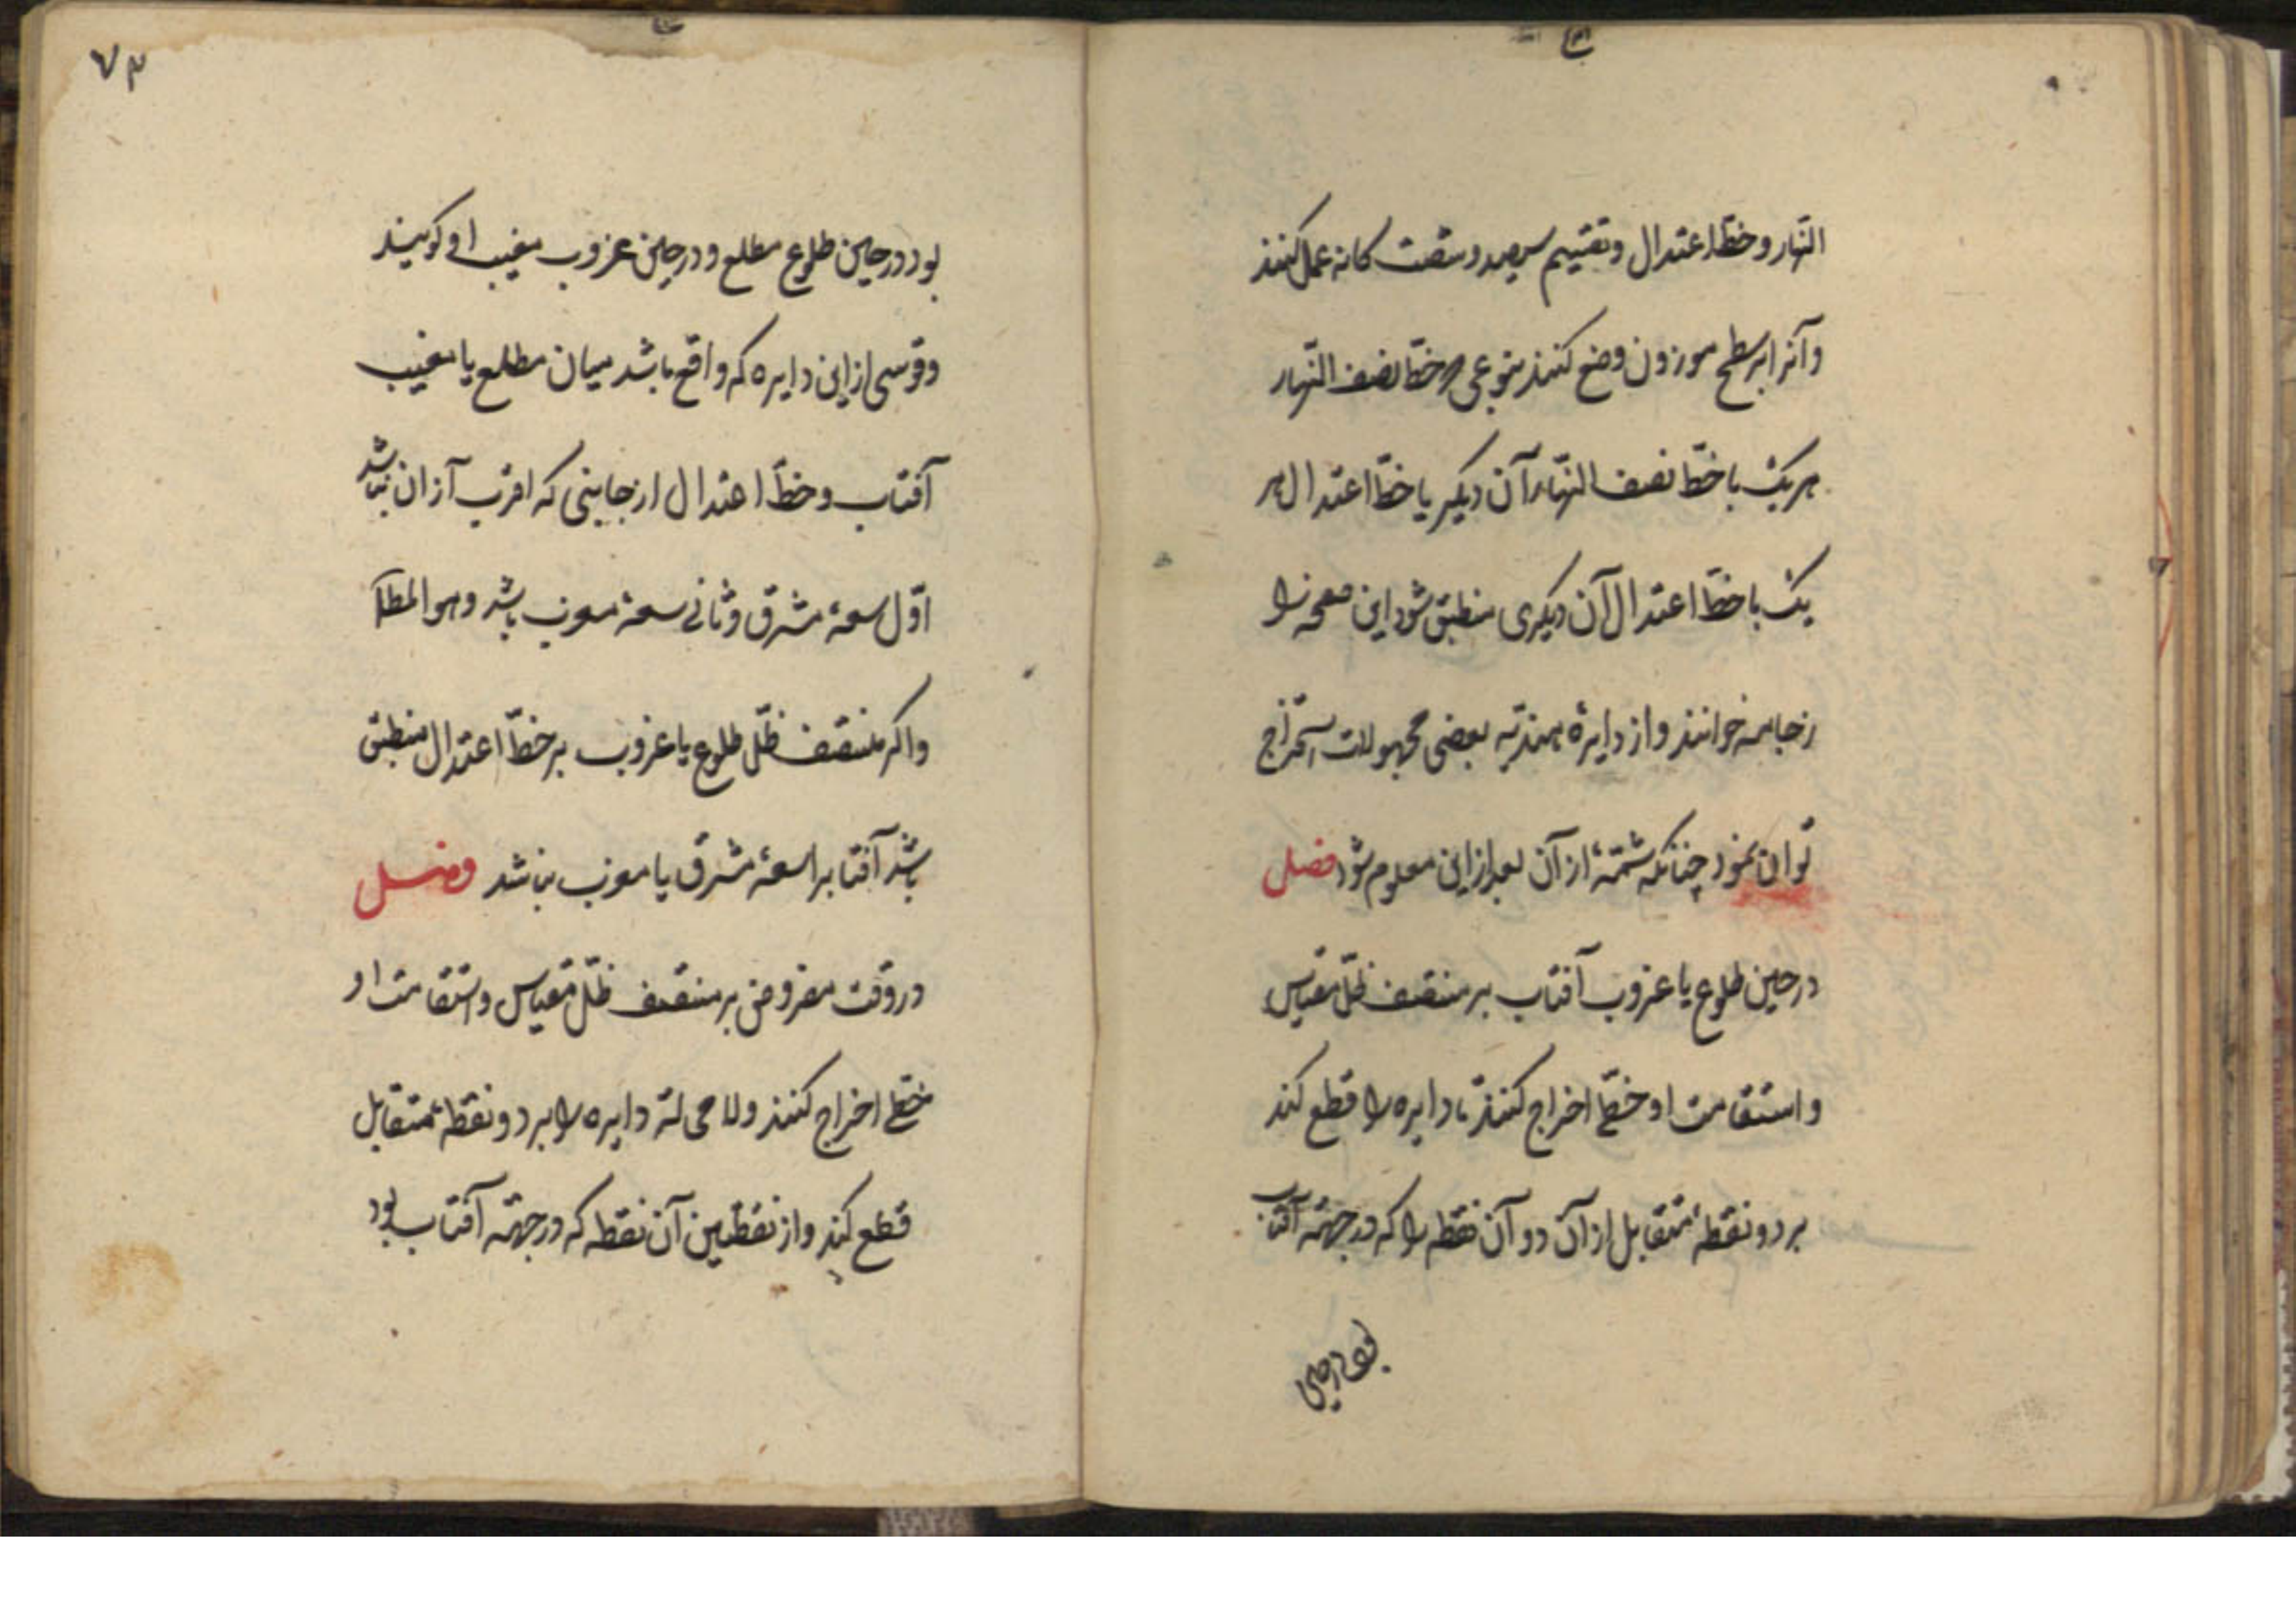 النّهار و خطّ اعتدال و تقسیم سیصد و شصت کانه عمل کنند
و آنرا بر سطح موزون وضع کنند بنوعی که خطّ نصف النّهار
هر یک با خطّ نصف النّهار آن دیکر یا خطّ اعتدال هر
یک با خطّ اعتدال آن دیکری منطبق شود این صفحه را
رخامه خوانند و از دایرۀ هندیّه بعضی مجهولات استخراج
توان نمود چنانکه شمّۀ از آن بعد از این معلوم شود فصل
در حین طلوع یا غروب آفتاب بر منتصف ظلّ مقیاس
و استقامت او خطّی اخراج کنند تا دایره را قطع کند
بر دو نقطۀ متقابل از آن دو آن نقطه را که در جهة آفتاب
بود در حین
۷۳
بود در حین طلوع مطلع و در حین غروب مغیب او کویند
و قوسی از این دایره که واقع باشد میان مطلع یا مغیب
آفتاب و خطّ اعتدال از جانبی که اقرب از آن نباشد
اوّل سعۀ مشرق و ثانی سعۀ مغرب باشد و هو المطلـ
و اکر منتصف ظلّ طلوع یا غروب بر خطّ اعتدال منطبق
باشد آفتابرا سعۀ مشرق یا مغرب نباشد فصل
در وقت مفروض بر منتصف ظلّ مقیاس و استقامت او
خطّی اخراج کنند و لا محاله دایره را بر دو نقطۀ متقابل
قطع کند و از نقطتین آن نقطه که در جهة آفتاب بود